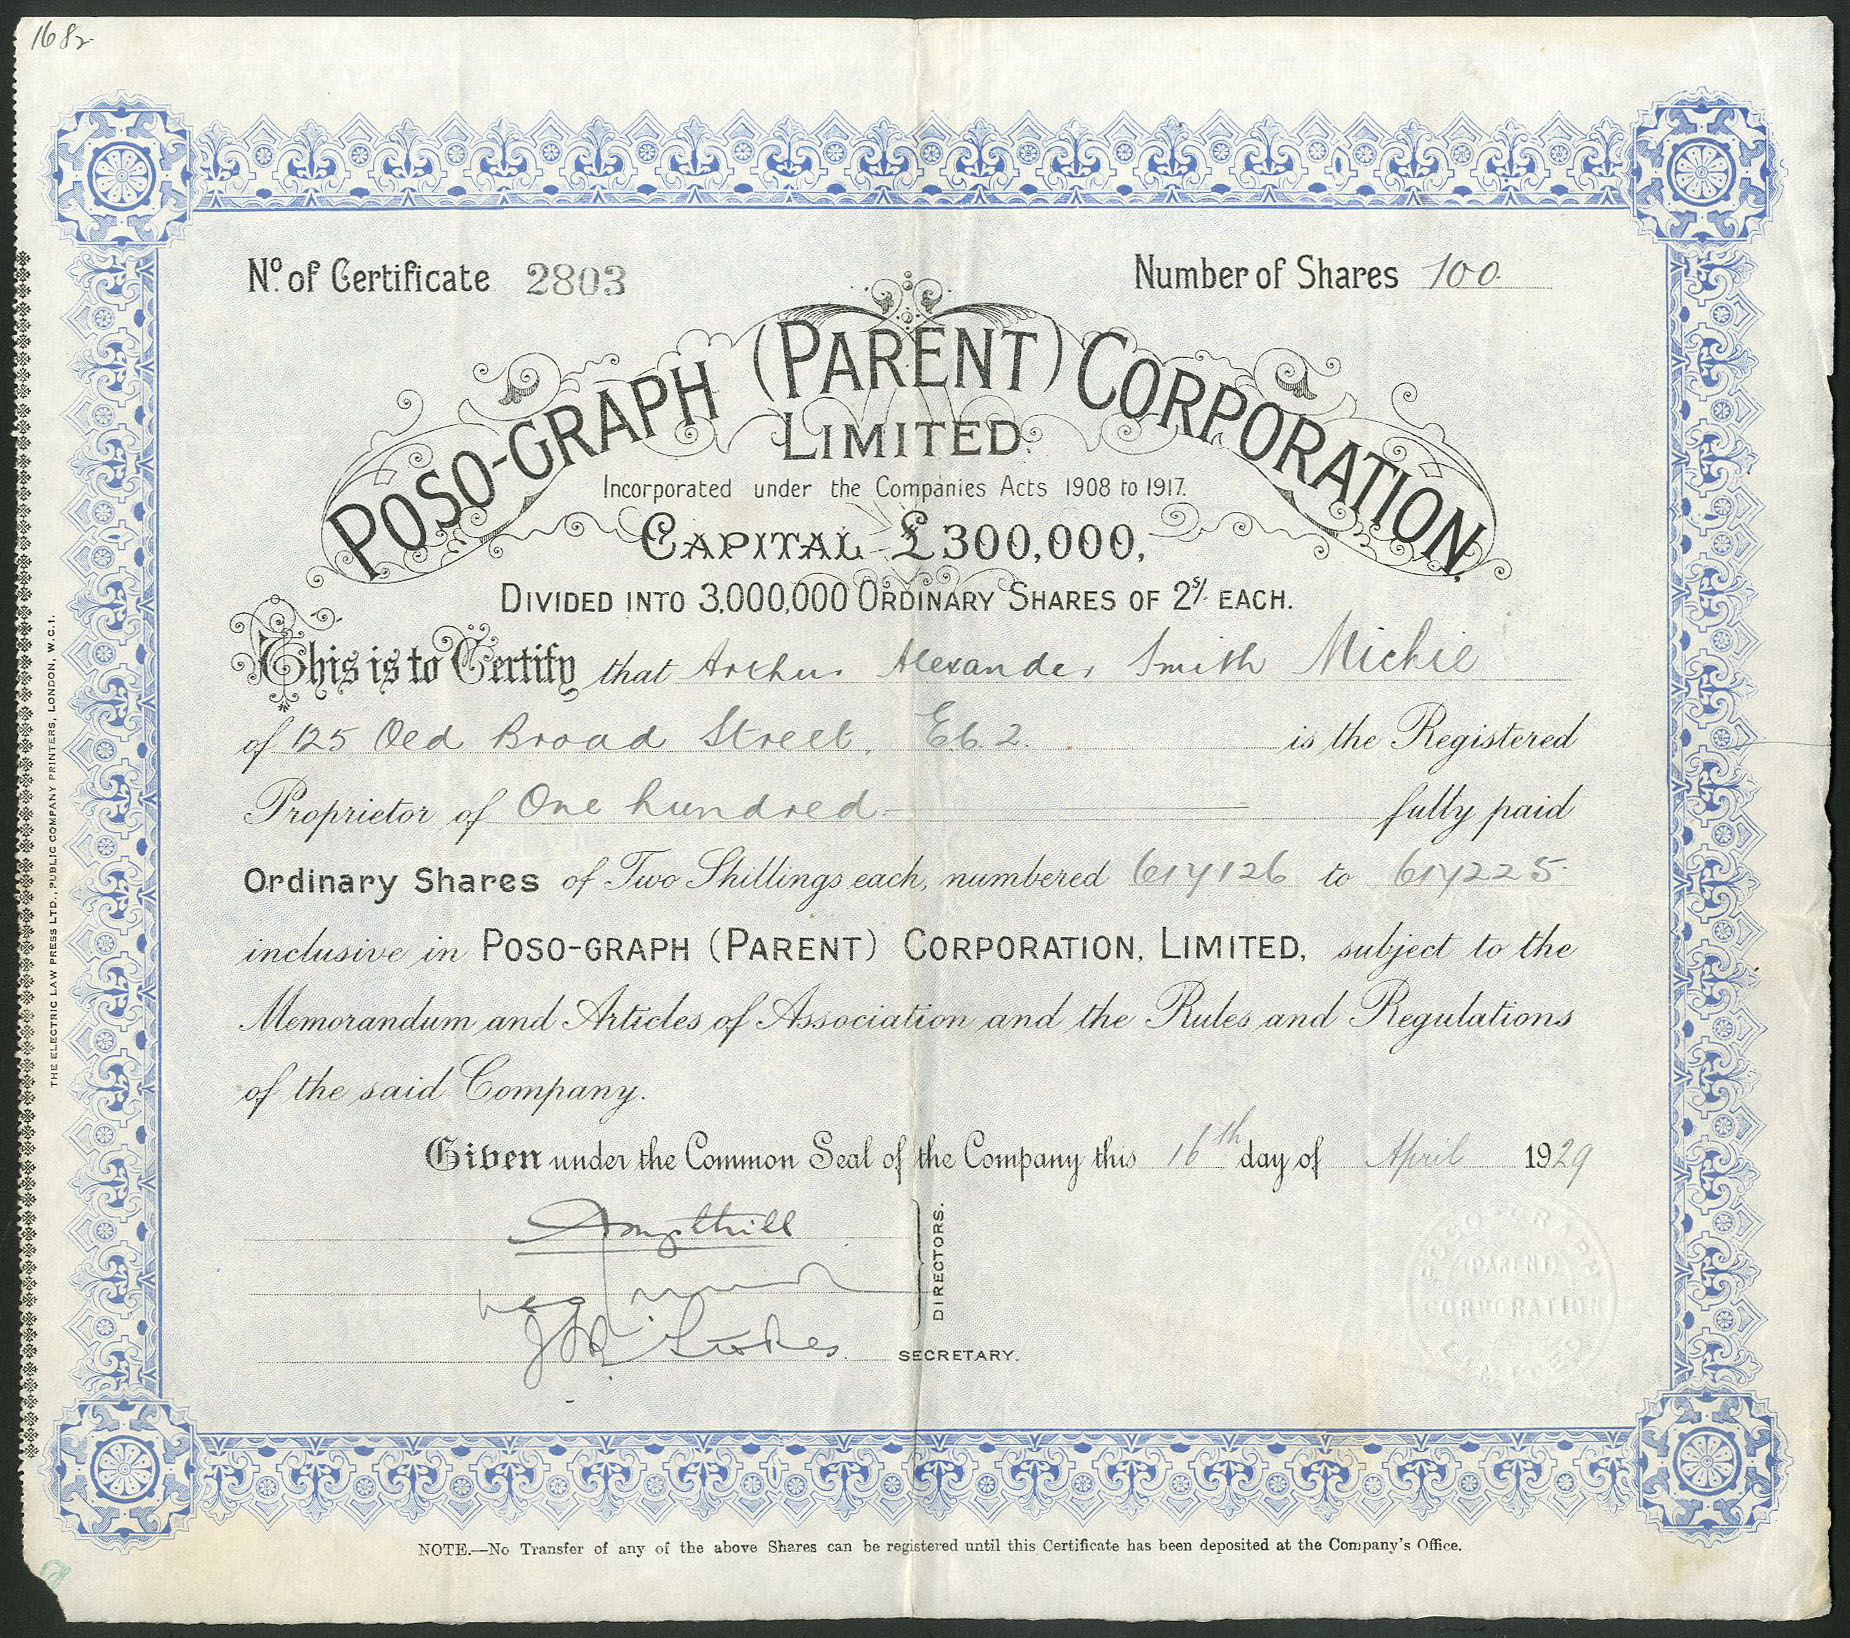 1682
Nº. of Certificate 2803
Number of Shares 100
POSO-GRAPH (PARENT) CORPORATION
LIMITED.
Incorporated under the Companies Acts 1908 to 1917.
CAPITAL £300,000,
DIVIDED INTO 3,000,000 ORDINARY SHARES OF 2s/. EACH.
This is to Certify that Arthur Alexander Smith Michie
of 125 Old Broad Street, E.C.2. is the Registered
Proprietor of One hundred fully paid
Ordinary Shares of Two Shillings each, numbered 617126 to 617225
inclusive in POSO-GRAPH (PARENT) CORPORATION, LIMITED, subject to the
Memorandum and Articles of Association and the Rules and Regulations
of the said Company.
Given under the Common Seal of the Company this 16th day of April 1929
DIRECTORS.
SECRETARY.
POSO-GRAPH
(PARENT)
CORPORATION
LIMITED
NOTE.—No Transfer of any of the above Shares can be registered until this Certificate has been deposited at the Company's Office.
THE ELECTRIC LAW PRESS LTD., PUBLIC COMPANY PRINTERS, LONDON, W.C.1.